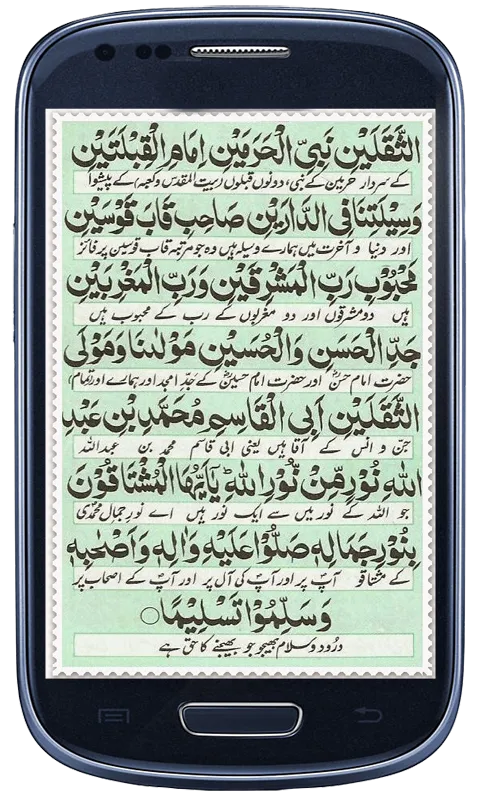 الثَّقَلَيْنِ نَبِيِّ الْحَرَمَيْنِ اِمَامِ الْقِبْلَتَيْنِ
کے سردار حرمین کے نبی، دونوں قبلوں (بیت المقدس و کعبہ) کے پیشوا
وَسِيْلَتِنَا فِي الدَّارَيْنِ صَاحِبِ قَابَ قَوْسَيْنِ
اور دنیا و آخرت میں ہمارے وسیلہ ہیں وہ جو مرتبہ قاب قوسین پر فائز
مَحْبُوْبِ رَبِّ الْمَشْرِقَيْنِ وَرَبِّ الْمَغْرِبَيْنِ
ہیں دو مشرقوں اور دو مغربوں کے رب کے محبوب ہیں
جَدِّ الْحَسَنِ وَالْحُسَيْنِ مَوْلٰىنَا وَمَوْلَى
حضرت امام حسنؓ اور حضرت امام حسینؓ کے جدِّ امجد اور ہمارے اور (تمام)
الثَّقَلَيْنِ اَبِي الْقَاسِمِ مُحَمَّدِ بْنِ عَبْدِ
جن و انس کے آقا ہیں یعنی ابی قاسم محمد بن عبداللہ
اللهِ نُوْرٍ مِّنْ نُّوْرِ اللهِ ؕ يٰٓاَيُّهَا الْمُشْتَاقُوْنَ
جو اللہ کے نور میں سے ایک نور ہیں اے نورِ جمالِ محمدی
بِنُوْرِ جَمَالِهٖ صَلُّوْا عَلَيْهِ وَاٰلِهٖ وَاَصْحٰبِهٖ
کے مشتاقو آپؐ پر اور آپؐ کی آل پر اور آپؐ کے اصحاب پر
وَسَلِّمُوْا تَسْلِيْمًا ○
درُود و سلام بھیجو جو بھیجنے کا حق ہے